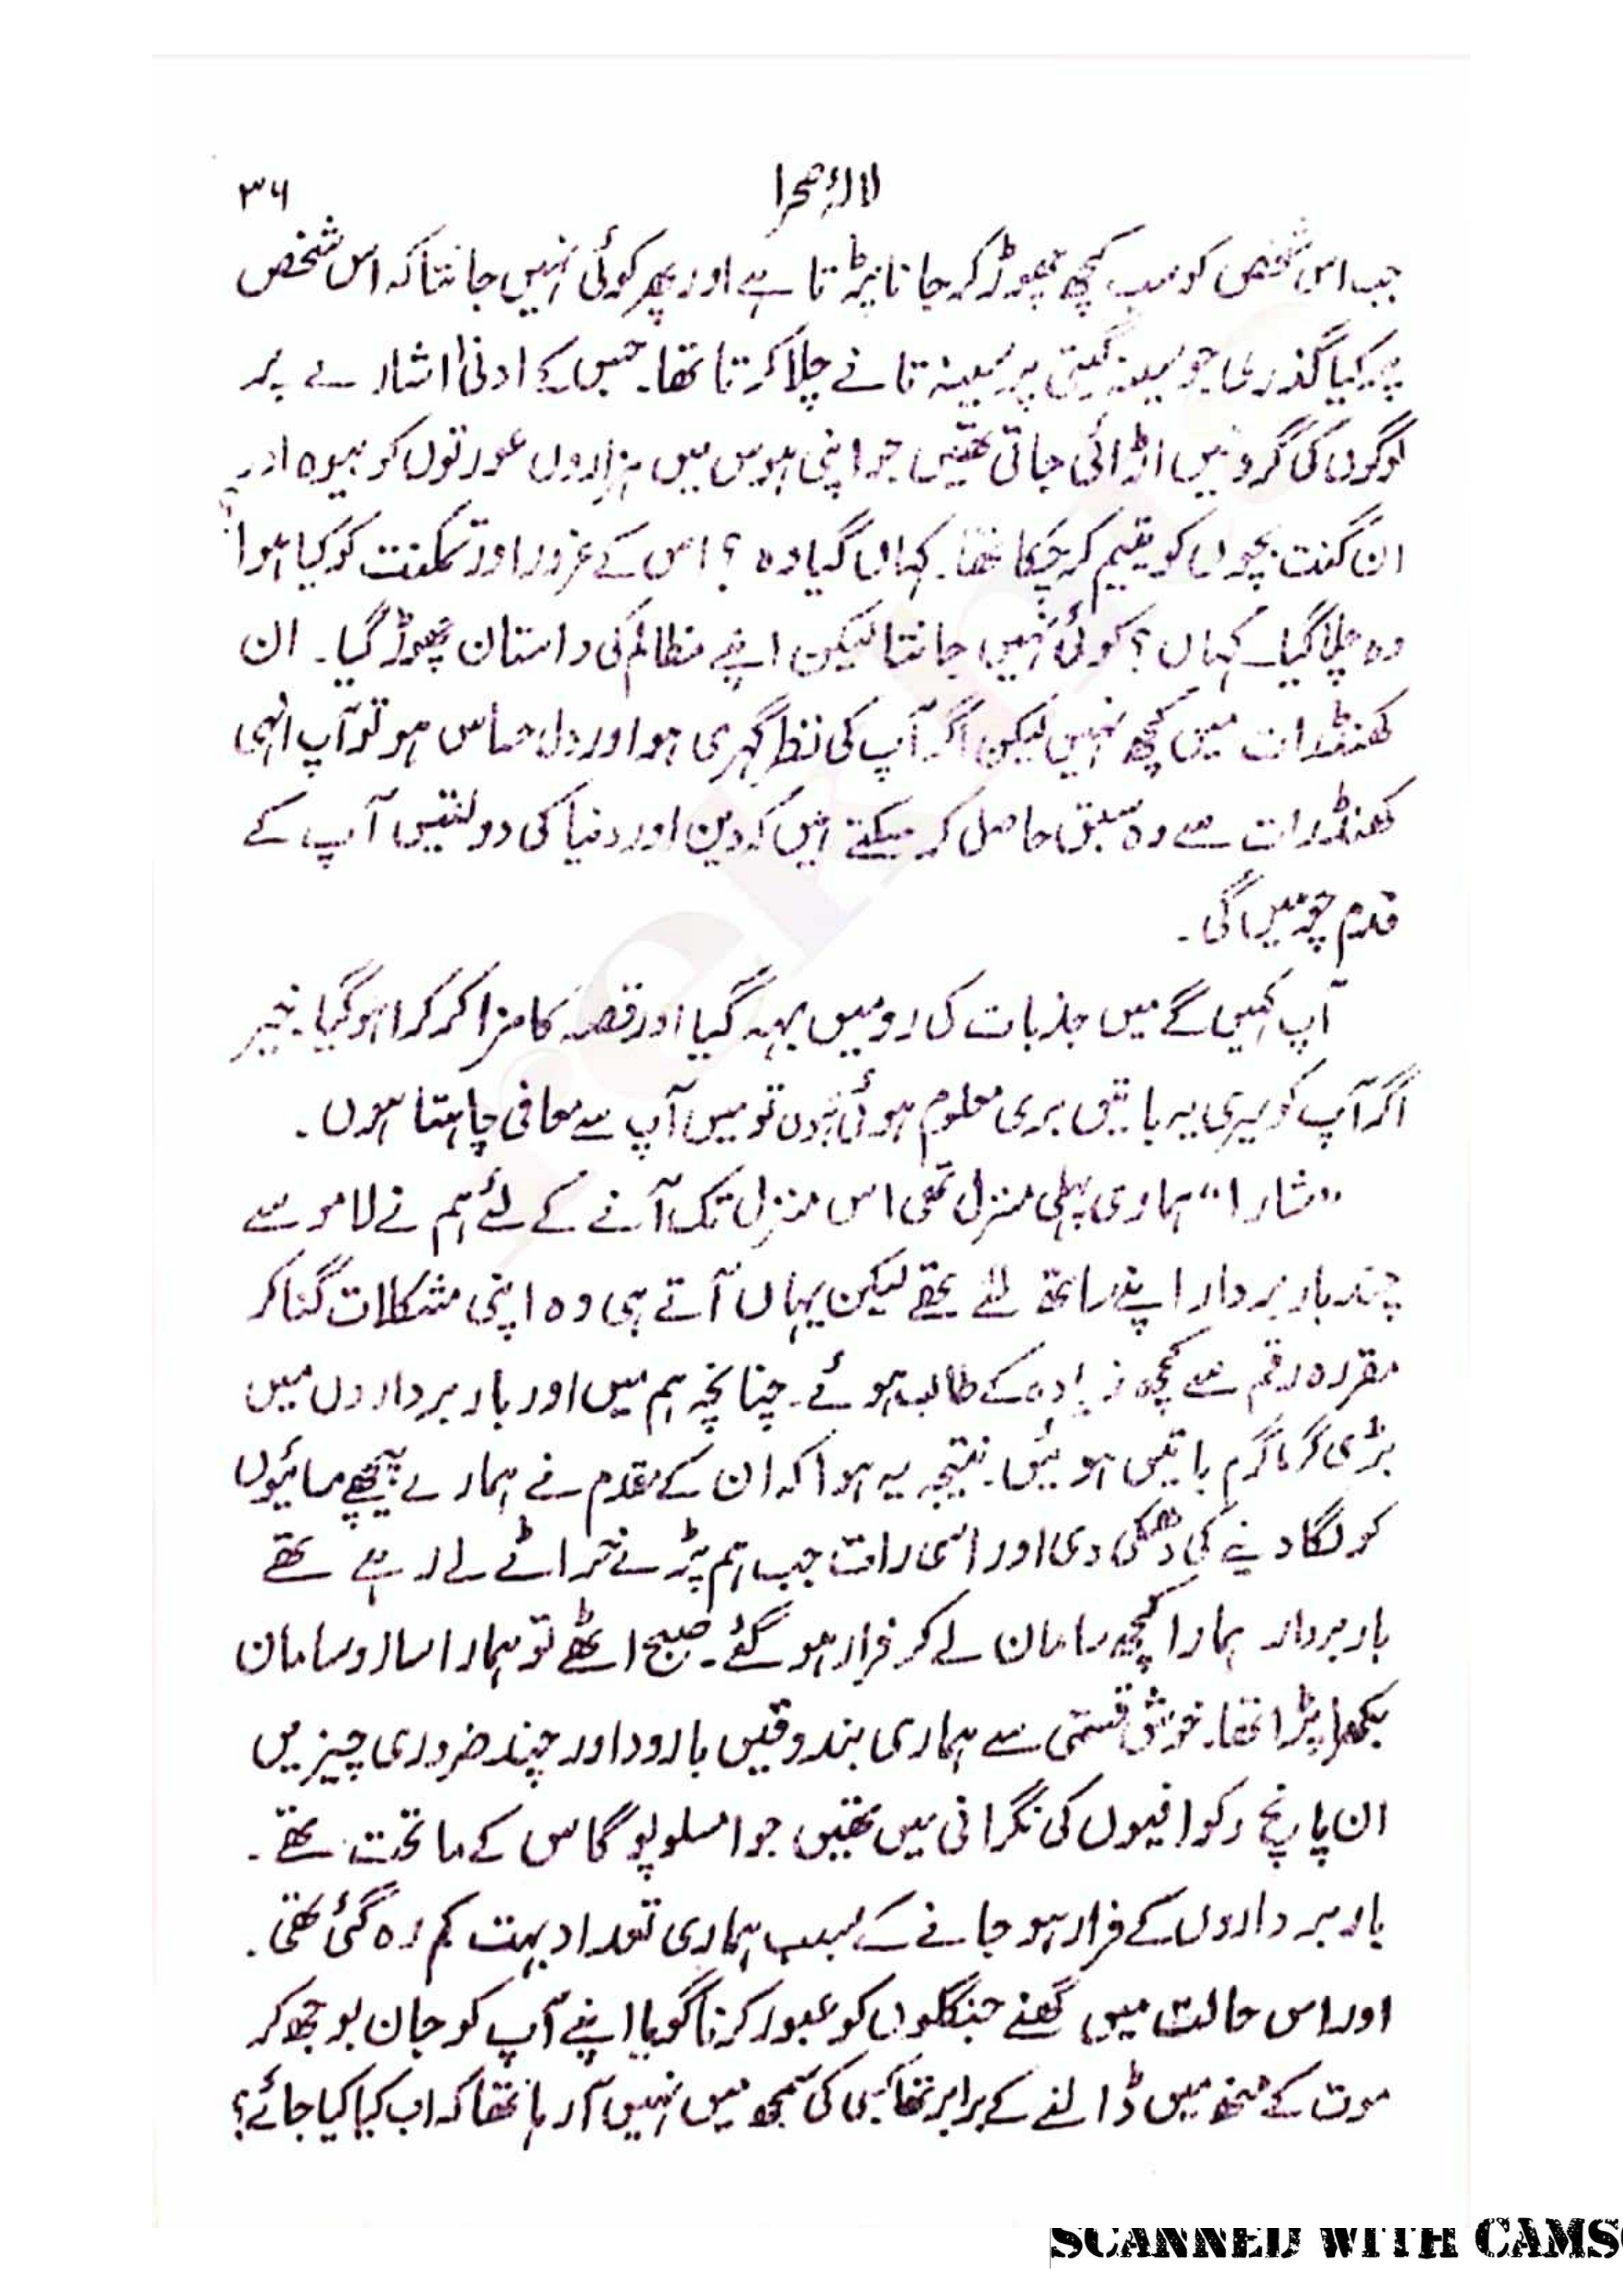 لالۂ صحرا
۳۶
جب اس شخص کو سب کچھ چھوڑ کر جانا پڑتا ہے اور پھر کوئی نہیں جانتا کہ اس شخص
پر کیا گذری جو سینۂ گیتی پر سینہ تانے چلا کرتا تھا۔ جس کے ادنیٰ اشارے پر
لوگوں کی گردنیں اڑائی جاتی تھیں جو اپنی ہوس میں ہزاروں عورتوں کو بیوہ اور
ان گنت بچوں کو یتیم کر چکا تھا۔ کہاں گیا وہ؟ اس کے غرور اور تمکنت کو کیا ہوا؟
وہ چلا گیا۔ کہاں؟ کوئی نہیں جانتا لیکن اپنے مظالم کی داستان چھوڑ گیا۔ ان
کھنڈرات میں کچھ نہیں لیکن اگر آپ کی نظر گہری ہو اور دل حساس ہو تو آپ انہی
کھنڈرات سے وہ سبق حاصل کر سکتے ہیں کہ دین اور دنیا کی دولتیں آپ کے
قدم چومیں گی۔
آپ کہیں گے میں جذبات کی رو میں بہہ گیا اور قصہ کا مزا کرکرا ہو گیا۔ خیر
اگر آپ کو میری یہ باتیں بری معلوم ہوئی ہوں تو میں آپ سے معافی چاہتا ہوں۔
”شارا“ ہماری پہلی منزل تھی اس منزل تک آنے کے لئے ہم نے لامو سے
چند باربردار اپنے ساتھ لئے تھے لیکن یہاں آتے ہی وہ اپنی مشکلات گنا کر
مقررہ رقم سے کچھ زیادہ کے طالب ہوئے۔ چنانچہ ہم میں اور باربرداروں میں
بڑی گرما گرم باتیں ہوئیں۔ نتیجہ یہ ہوا کہ ان کے مقدم نے ہمارے پیچھے مسائیوں
کو لگا دینے کی دھمکی دی اور اسی رات جب ہم پڑے خراٹے لے رہے تھے
باربردار ہمارا کچھ سامان لے کر فرار ہو گئے۔ صبح اٹھے تو ہمارا ساز و سامان
بکھرا پڑا تھا۔ خوش قسمتی سے ہماری بندوقیں بارود اور چند ضروری چیزیں
ان پانچ وکوافیوں کی نگرانی میں تھیں جو امسلوپوگاس کے ماتحت تھے۔
باربرداروں کے فرار ہو جانے کے سبب ہماری تعداد بہت کم رہ گئی تھی۔
اور اس حالت میں گھنے جنگلوں کو عبور کرنا گویا اپنے آپ کو جان بوجھ کر
موت کے منھ میں ڈالنے کے برابر تھا کسی کی سمجھ میں نہیں آ رہا تھا کہ اب کیا کیا جائے؟
SCANNED WITH CAMS